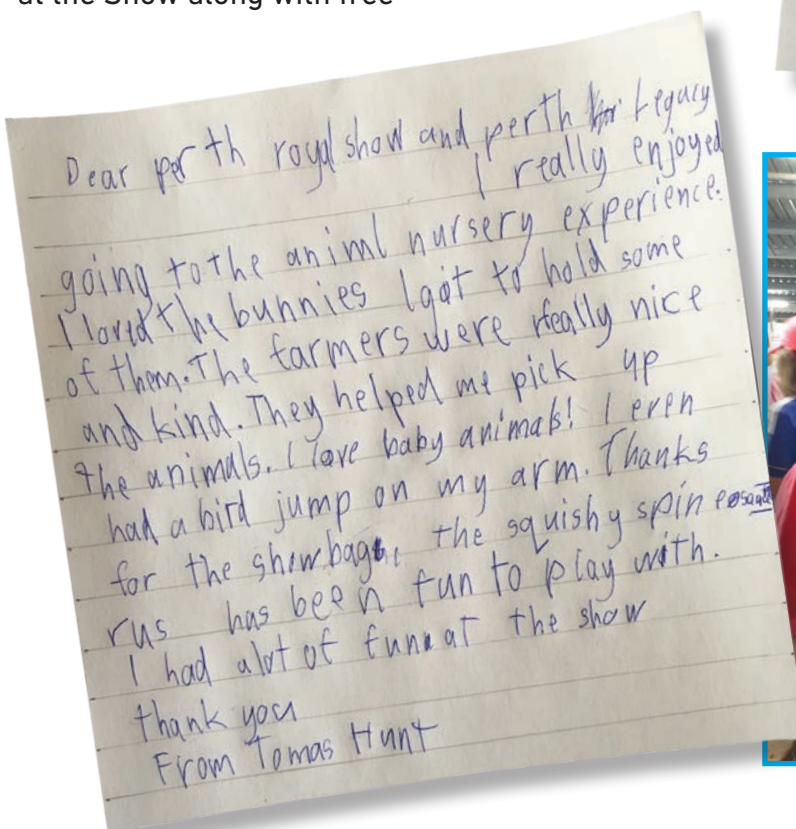 at the Show along with free
Dear perth royal show and perth Legacy
I really enjoyed
going to the animl nursery experience.
I loved the bunnies I got to hold some
of them. The farmers were really nice
and kind. They helped me pick up
the animals. I love baby animals! I even
had a bird jump on my arm. Thanks
for the showbag, the squishy spinosau
rus has been fun to play with.
I had alot of fun at the show
thank you
From Tomas Hunt